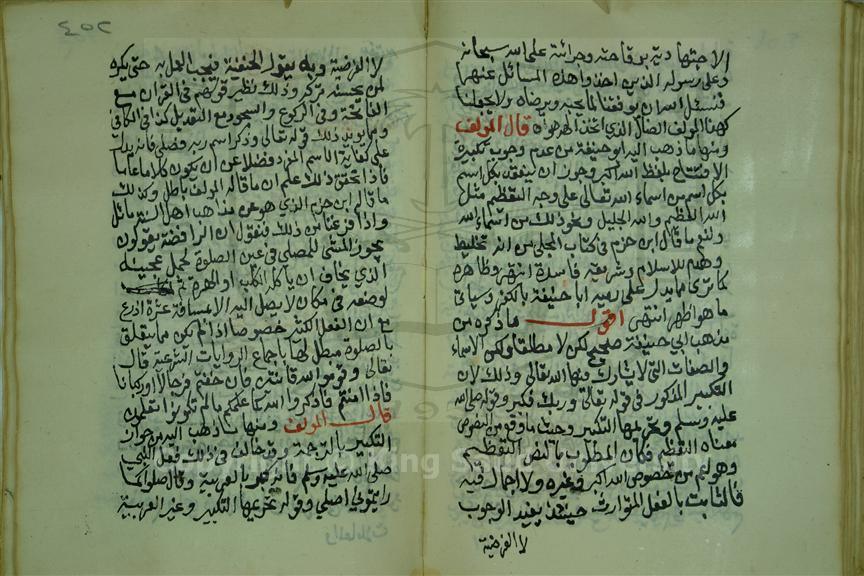 الاجتهاد دين بوقاحته وجرائته على الله سبحانه
وعلى رسوله الذين اخذوا هذه المسائل عنهما
فنسئل الله ان يوفقنا لما يحبه ويرضاه ولا يجعلنا
كهذا المؤلف الضال الذي اتخذ الهه هواه قال المؤلف
ومنها ما ذهب اليه ابو حنيفة من عدم وجوب تكبيرة
الافتتاح بلفظ الله اكبر وجوز ان ينعقد بكل اسم
بكل اسم من اسماء الله تعالى على وجه التعظيم مثل
الله العظيم والله الجليل ونحو ذلك من اسماء الله
ولنعم ما قال ابن حزم في كتاب المحلى من انه تخليط
وهدم للاسلام وشريعة فاسدة انتهى وظاهره
كما ترى مما يدل على رميه ابا حنيفة بالكفر وسياتي
ما هو اظهر انتهى اقول ما ذكره من
مذهب ابي حنيفة صحيح لكن لا مطلقا ولكن الاسماء
والصفات التي لا يشارك فيها الله تعالى وذلك لان
التكبير المذكور في قوله تعالى وربك فكبر وقوله صلى الله
عليه وسلم وتحريمها التكبير
معناه التعظيم فكان المطلوب بالنص التعظيم
وهو اعم من خصوص الله اكبر وغيره ولا اجمال فيه
فالثابت بالفعل المتوارث حينئذ يفيد الوجوب
لا الفرضية
٤٥٢
لا الفرضية وبه يقول الحنفية فيجب العمل به حتى يكره
لمن يحسنه تركه وذلك نظير قولهم في القران مع
الفاتحة وفي الركوع والسجود مع التعديل كذا في الكافي
ومما يؤيد ذلك قوله تعالى وذكر اسم ربه فصلى فانه يدل
على كفاية الاسم المفرد فضلا عن ان يكون كلاما تاما
فاذا تحقق ذلك علم ان ما قاله المؤلف باطل وكذلك
ما قاله ابن حزم الذي هو عن مذاهب اهل السنة مائل
واذا فرغنا من ذلك فنقول ان الرافضة يقولون
يجوز المشي للمصلي في عين الصلوة لحمل عجينه
الذي يخاف ان ياكله الكلب او الهرة ثم
لوضعه في مكان لا يصل اليه الا مسافة عشرة اذرع
مع ان الفعل الكثير خصوصا اذا لم يكن مما يتعلق
بالصلوة مبطل لها باجماع الروايات الشرعية قال
تعالى وقوموا لله قانتين فان خفتم فرجالا او ركبانا
فاذا امنتم فاذكروا الله كما علمكم ما لم تكونوا تعلمون
قال المؤلف ومنها ما ذهب اليه من جواز
التكبير بالترجمة وقد خالف في ذلك فعل النبي
صلى الله عليه وسلم فانه كبر بالعربية وقال صلوا كما
رايتموني اصلي وقوله تحريمها التكبير وغير العربية